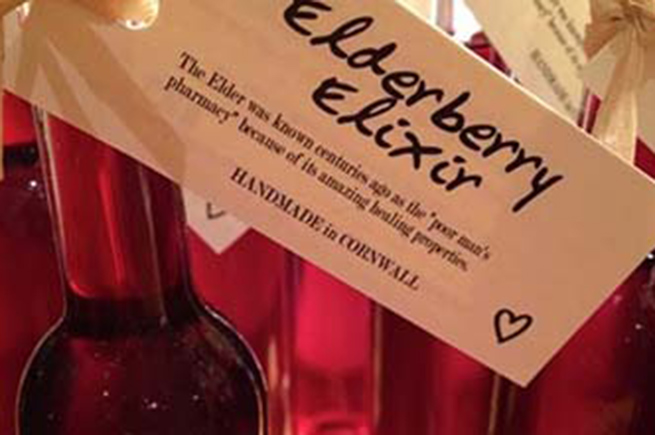 Elderberry
Elixir
The Elder was known centuries ago as the "poor man's
pharmacy" because of its amazing healing properties.
HANDMADE in CORNWALL